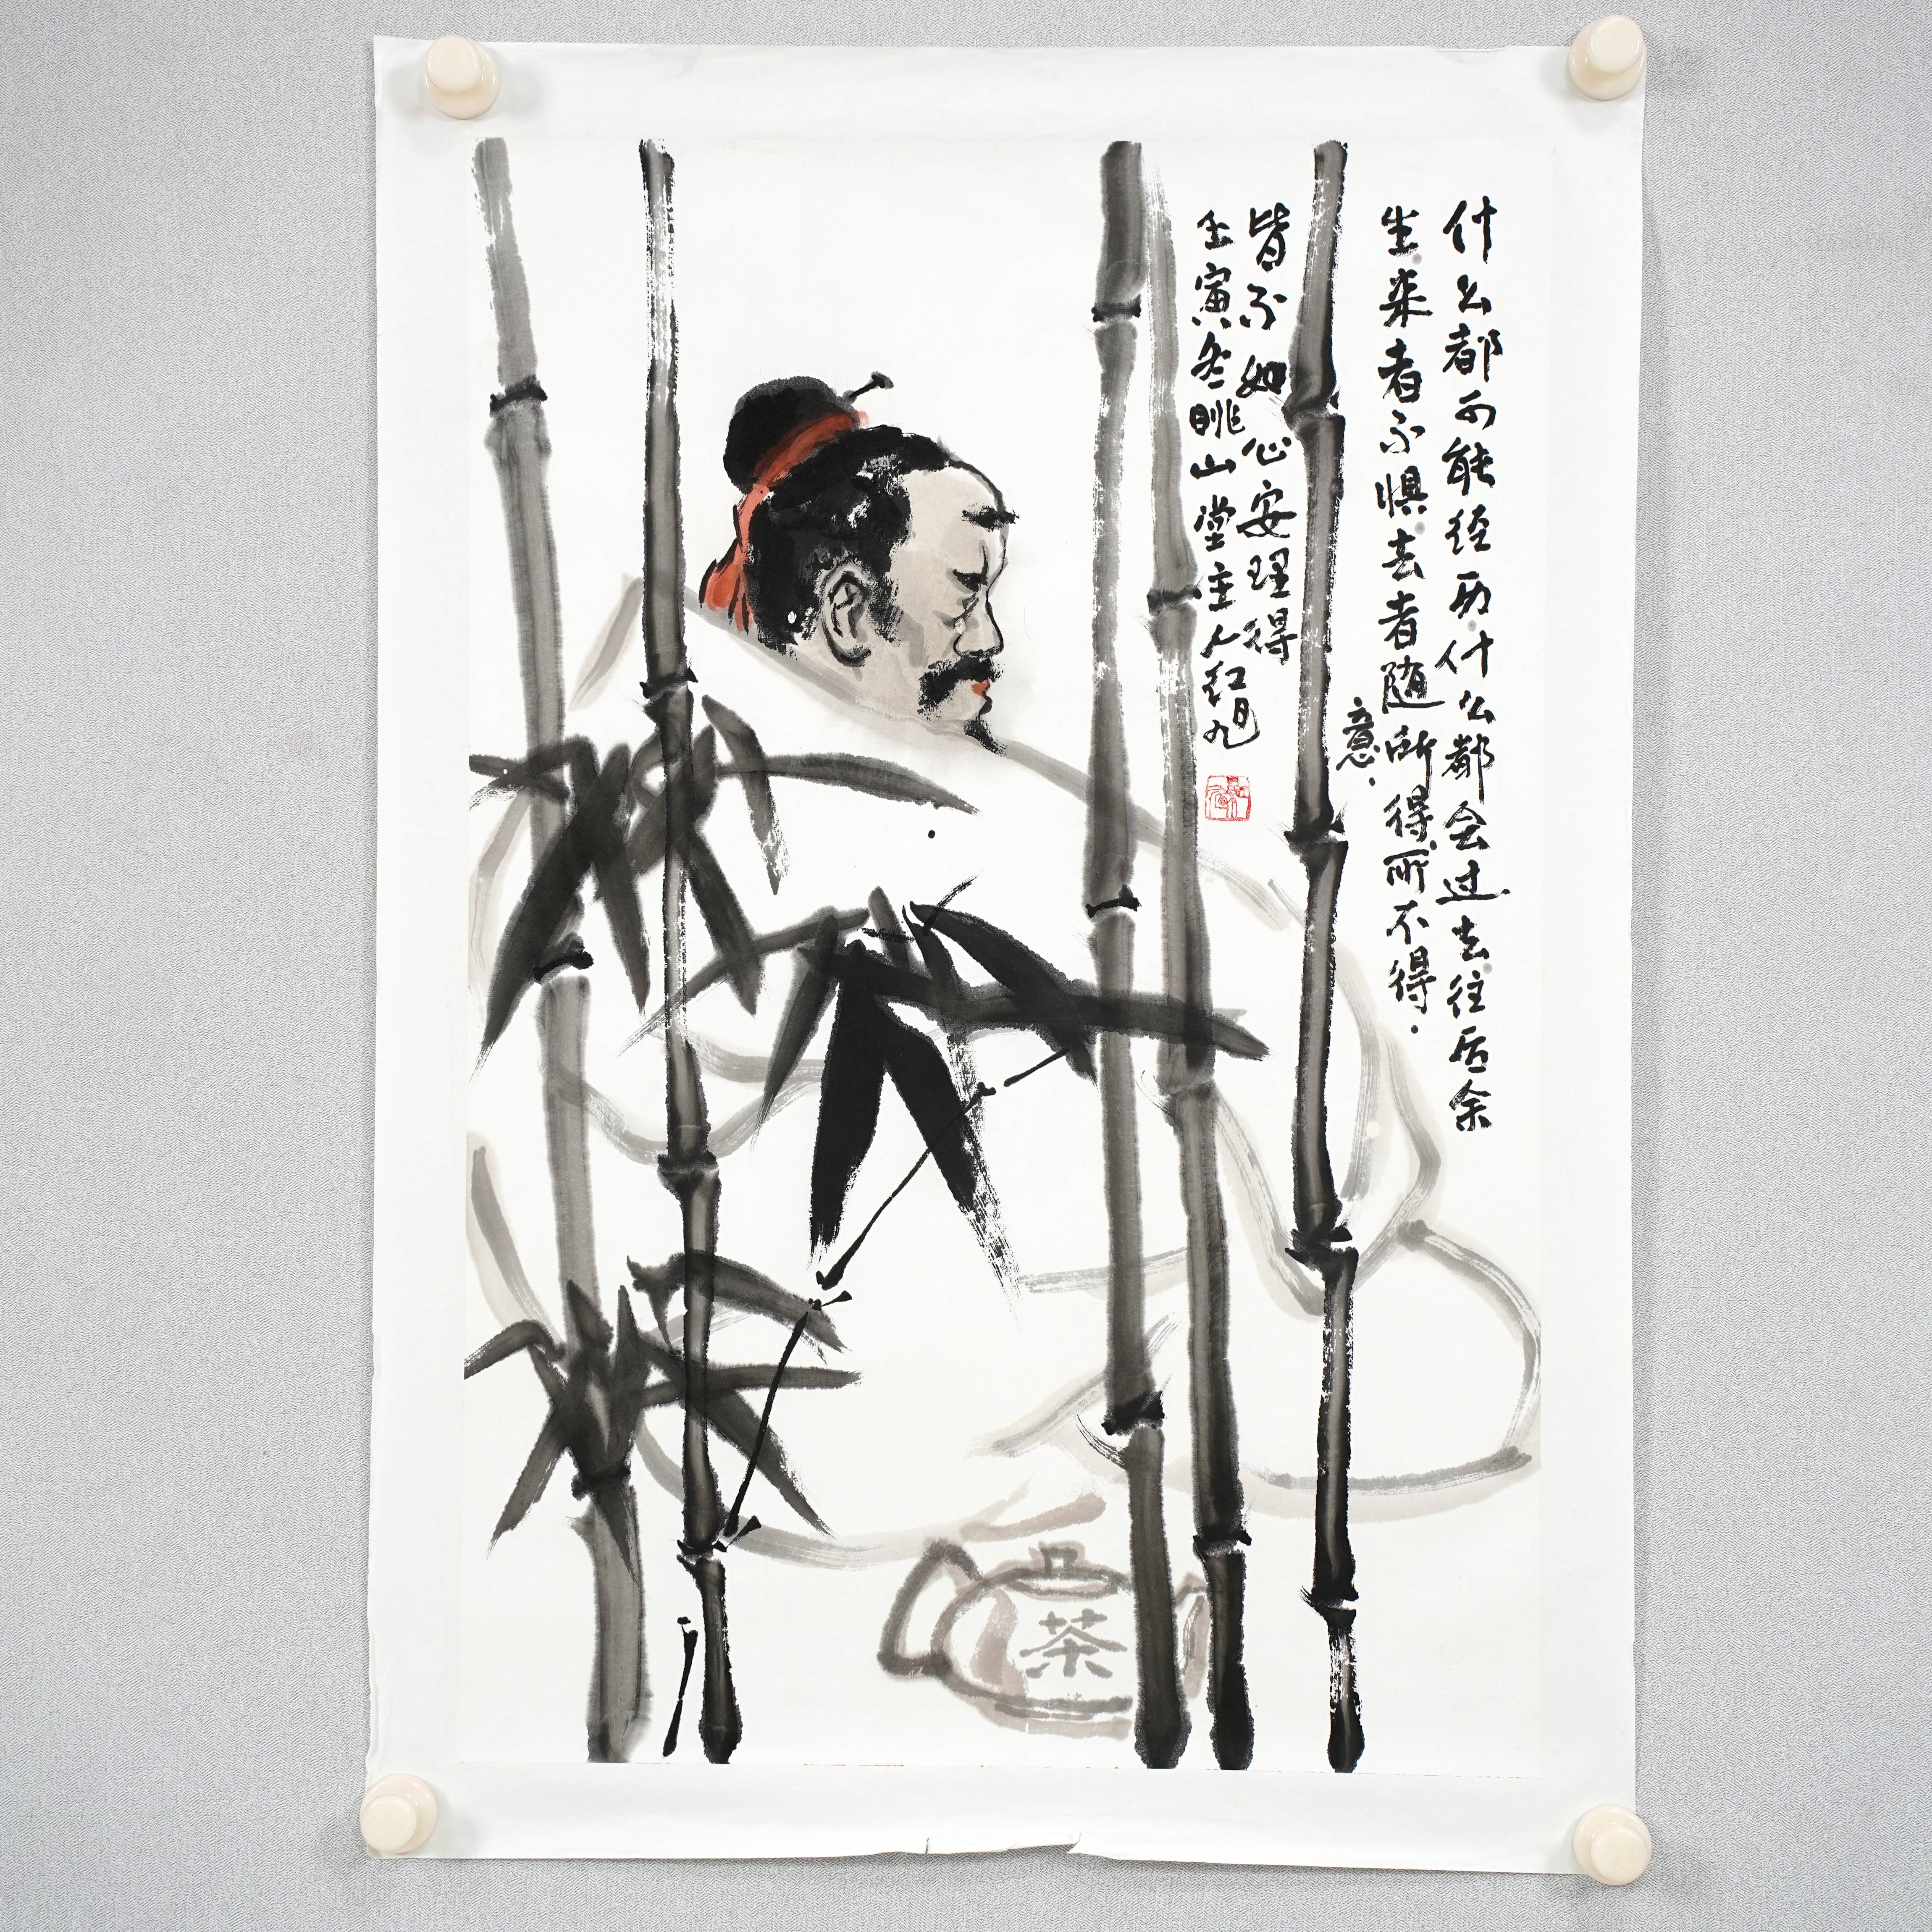 什么都可能经历什么都会过去往后余
生来者不惧去者随意
所得所不得
皆不如心安理得
壬寅冬眺山堂主人红旭
茶